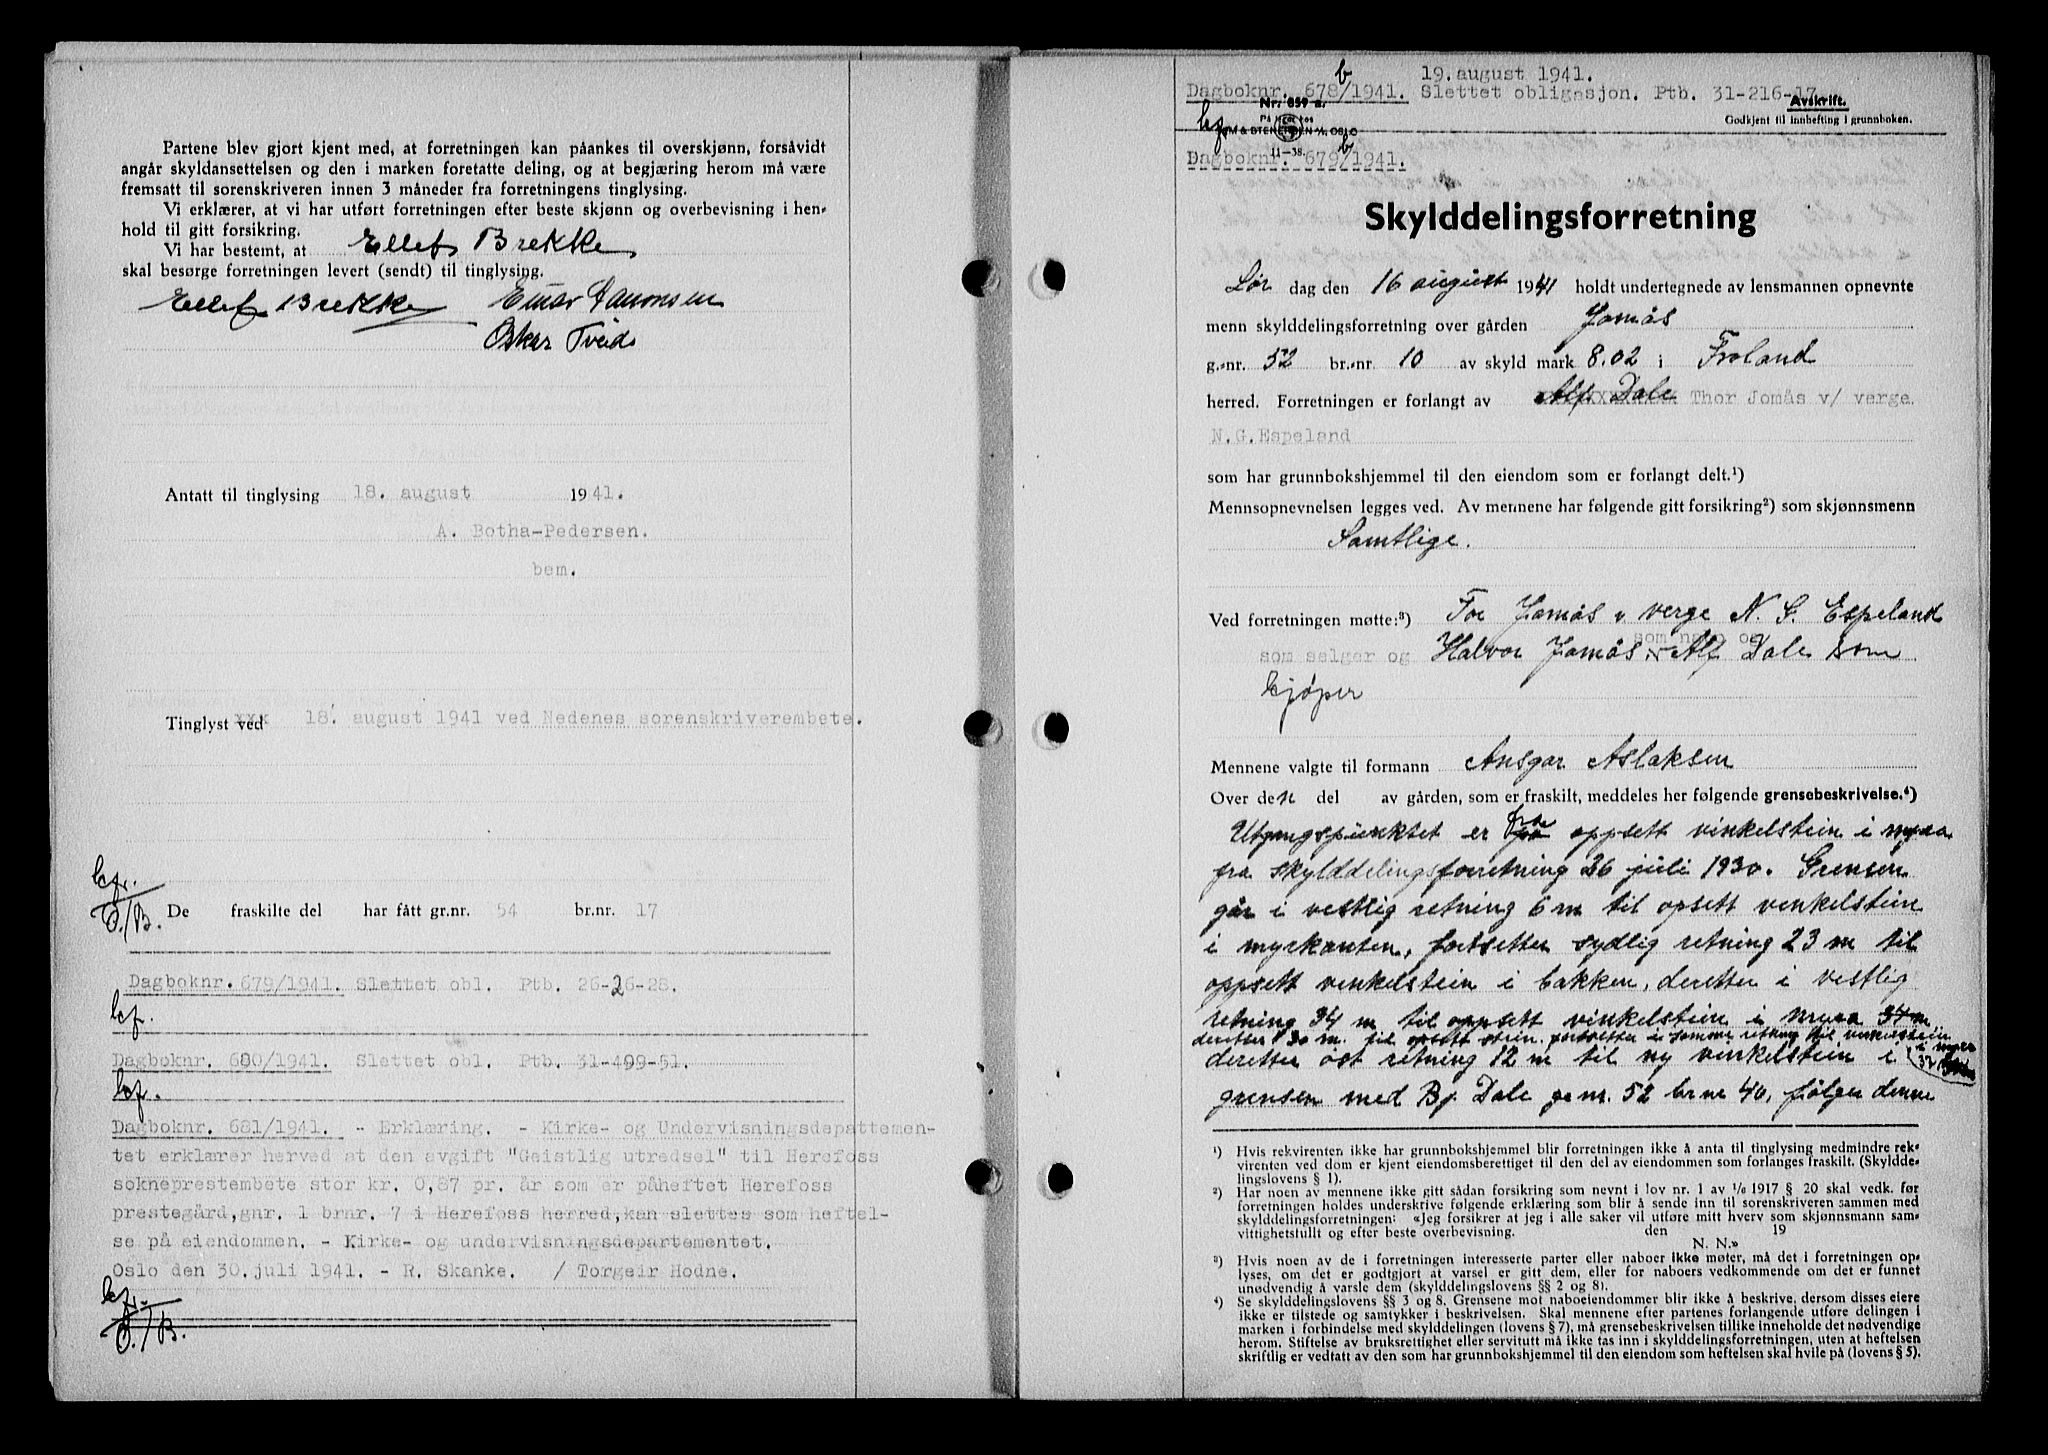 Partene blev gjort kjent med, at forretningen kan påankes til overskjønn, forsåvidt
angår skyldansettelsen og den i marken foretatte deling, og at begjæring herom må være
fremsatt til sorenskriveren innen 3 måneder fra forretningens tinglysing.
Vi erklærer, at vi har utført forretningen efter beste skjønn og overbevisning i hen-
hold til gitt forsikring.
Vi har bestemt, at Ellef Brekke
skal besørge forretningen levert (sendt) til tinglysing.
Ellef Brekke Einar
Osker Tveide
Antatt til tinglysing 18. august 1941.
A. Botha-Pedersen.
bem.
Tinglyst ved xxx 18. august 1941 ved Nedenes sorenskriverembete.
kf.
O./B. De fraskilte del har fått gr.nr. 54 br.nr. 17
Dagboknr. 679/1941. Slettet obl. Ptb. 26-26-28.
kf.
Dagboknr. 680/1941. Slettet obl. Ptb. 31-499-51.
kf.
Dagboknr. 681/1941. - Erklæring. - Kirke- og Undervisningsdepattemen-
tet erklærer herved at den avgift "Geistlig utredsel" til Herefoss
sokneprestembete stor kr. 0,87 pr. år som er påheftet Herefoss
prestegård,gnr. 1 brnr. 7 i Herefoss herred,kan slettes som heftel-
se på eiendommen. - Kirke- og undervisningsdepartementet.
Oslo den 30.juli 1941. - R. Skanke. / Torgeir Hodne.
kf.
O./B.
19. august 1941.
Dagboknr. 678b/1941. Slettet obligasjon. Ptb. 31-216-17.
Nr. 859 a. Avskrift.
Godkjent til innhefting i grunnboken.
kf
11-38.
Dagboknr. 679b/1941.
Skylddelingsforretning
Lør dag den 16 august 1941 holdt undertegnede av lensmannen opnevnte
menn skylddelingsforretning over gården Jomås
g.-nr. 52 br.-nr. 10 av skyld mark 8.02 i Froland
herred. Forretningen er forlangt av Alf Dale Thor Jomås v/ verge
N.G.Espeland
som har grunnbokshjemmel til den eiendom som er forlangt delt.¹)
Mennsopnevnelsen legges ved. Av mennene har følgende gitt forsikring²) som skjønnsmenn
Samtlige.
Ved forretningen møtte:³) Tor Jomås v. verge N. G. Espeland
som selger og Halvor Jomås som nabo og Alf Dale som
kjøper
Mennene valgte til formann Ansgar Aslaksen
Over den del av gården, som er fraskilt, meddeles her følgende grensebeskrivelse.⁴)
Utgangspunktet er fra oppsett vinkelstein i myra
fra skylddelingsforretning 26 juli 1930. Grensen
går i vestlig retning 6 m til opsett vinkelstein
i myrkanten, fortsetter sydlig retning 23 m til
oppsett vinkelstein i bakken, deretter i vestlig
retning 34 m til oppsett vinkelstein i myra 34 m
deretter 30 m. til opsett stein, fortsetter i samme retning til vinkelstein
i myra
deretter øst retning 12 m til ny vinkelstein i 32
grensen med Bj Dale gr nr. 52 br nr 40, følger denne
¹) Hvis rekvirenten ikke har grunnbokshjemmel blir forretningen ikke å anta til tinglysing medmindre rek-
virenten ved dom er kjent eiendomsberettiget til den del av eiendommen som forlanges fraskilt. (Skyldde-
lingslovens § 1).
²) Har noen av mennene ikke gitt sådan forsikring som nevnt i lov nr. 1 av 1/6 1917 § 20 skal vedk. før
forretningen holdes underskrive følgende erklæring som blir å sende inn til sorenskriveren sammen med
skylddelingsforretningen: «Jeg forsikrer at jeg i alle saker vil utføre mitt hverv som skjønnsmann sam-
vittighetsfullt og efter beste overbevisning. den 19
N. N.»
³) Hvis noen av de i forretningen interesserte parter eller naboer ikke møter, må det i forretningen op-
lyses, om det er godtgjort at varsel er gitt dem, eller for naboers vedkommende om det er funnet
unødvendig å varsle dem (skylddelingslovens §§ 2 og 8).
⁴) Se skylddelingslovens §§ 3 og 8. Grensene mot naboeiendommer blir ikke å beskrive, dersom disses eiere
ikke er tilstede og samtykker i beskrivelsen. Skal mennene efter partenes forlangende utføre delingen i
marken i forbindelse med skylddelingen (lovens § 7), må grensebeskrivelsen tillike inneholde det nødvendige
herom. Stiftelse av bruksrettighet eller servitutt må ikke tas inn i skylddelingsforretningen, uten at heftelsen
skriftlig er vedtatt av den som har grunnbokshjemmel til den eiendom som heftelsen skal hvile på (lovens § 5).